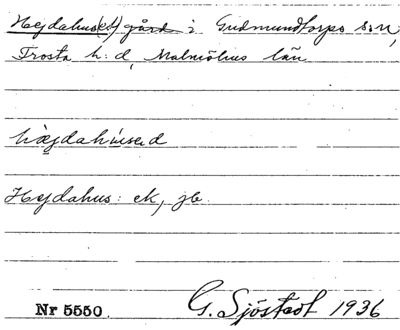 Hejdahus(et) gård i Gudmundtorps sn,
Frosta h:d, Malmöhus län
hæjdahúsəd
Hejdahus: ek, jb.
Nr 5550. G. Sjöstedt 1936